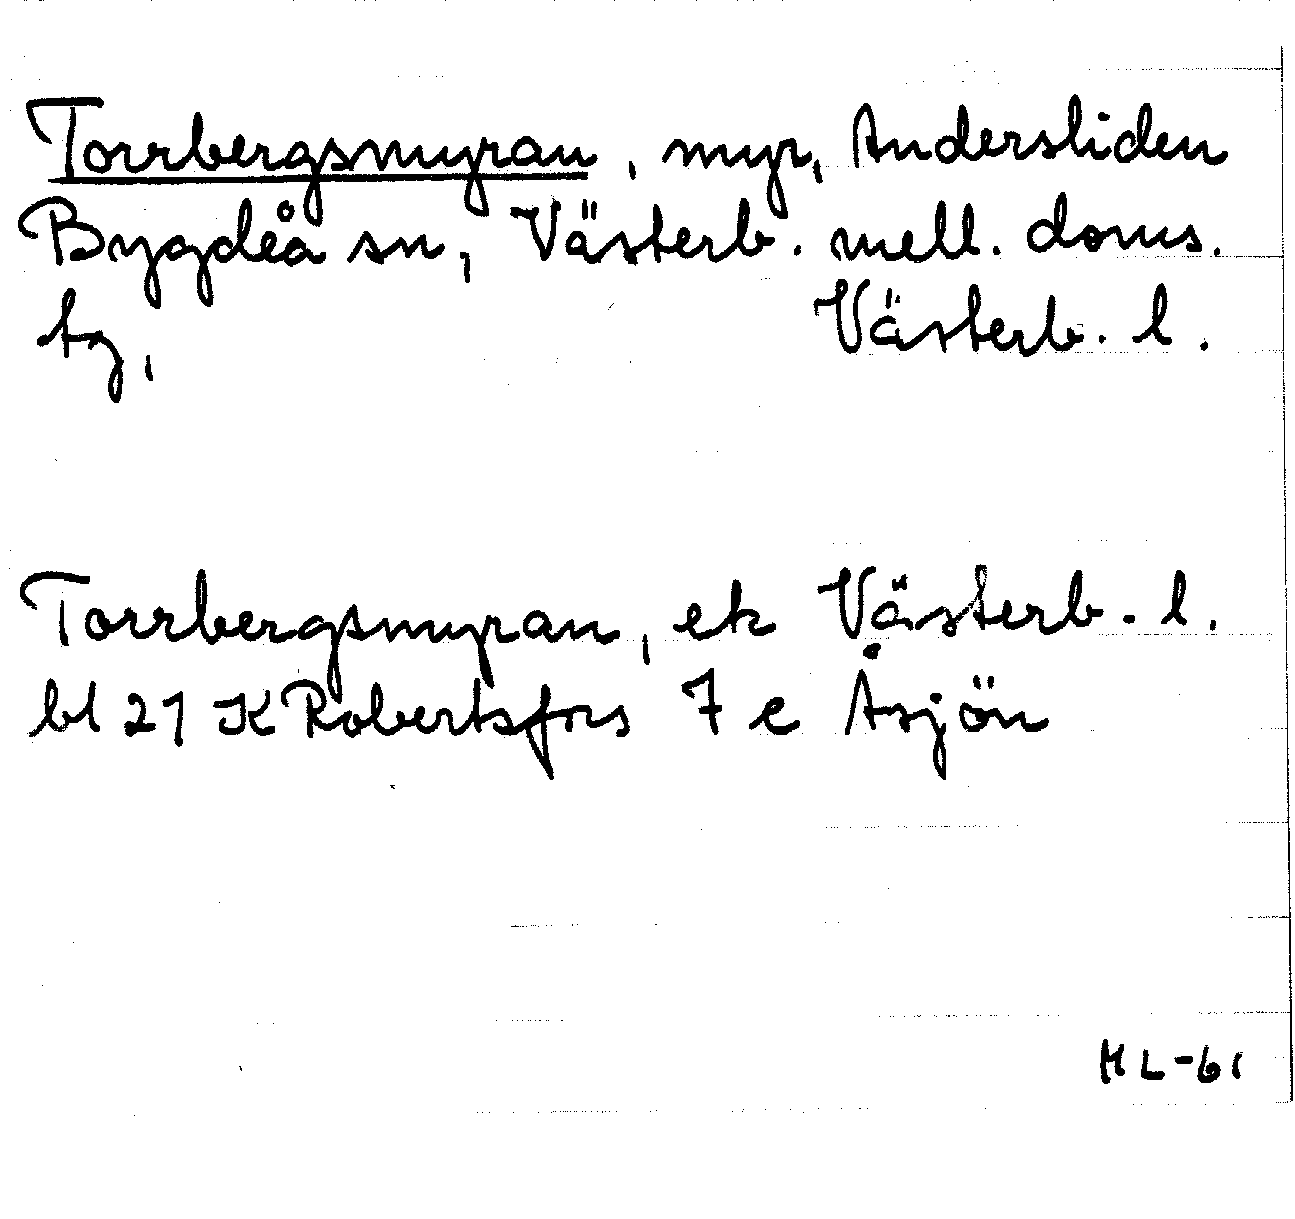 Torrbergsmyran, myr, Andersliden
Bygdeå sn, Västerb. mell. doms.
tg, Västerb. l.
Torrbergsmyran, ek Västerb. l.
bl 21 K Robertsfors 7 e Åsjön
HL-61